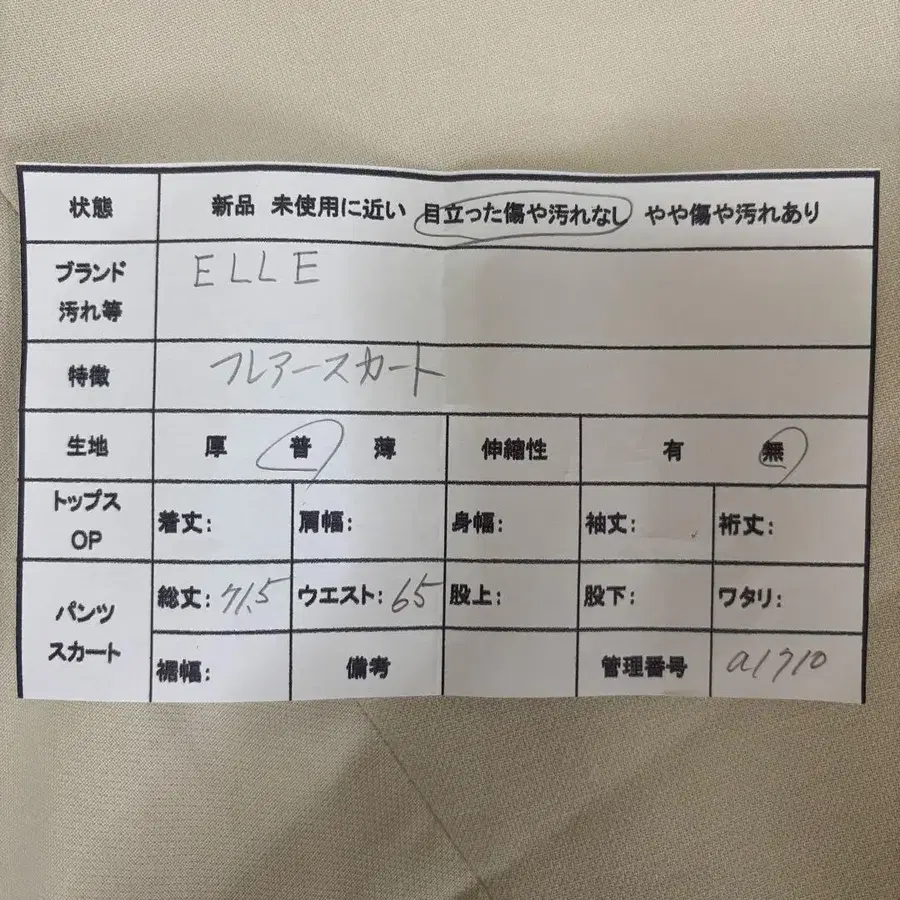 状態 新品 未使用に近い 目立った傷や汚れなし やや傷や汚れあり
ブランド ELLE
汚れ等
特徴 フレアースカート
生地 厚 普 薄 伸縮性 有 無
トップス
OP 着丈: 肩幅: 身幅: 袖丈: 裄丈:
パンツ
スカート 総丈: 71.5 ウエスト: 65 股上: 股下: ワタリ:
裾幅: 備考 管理番号 a1710